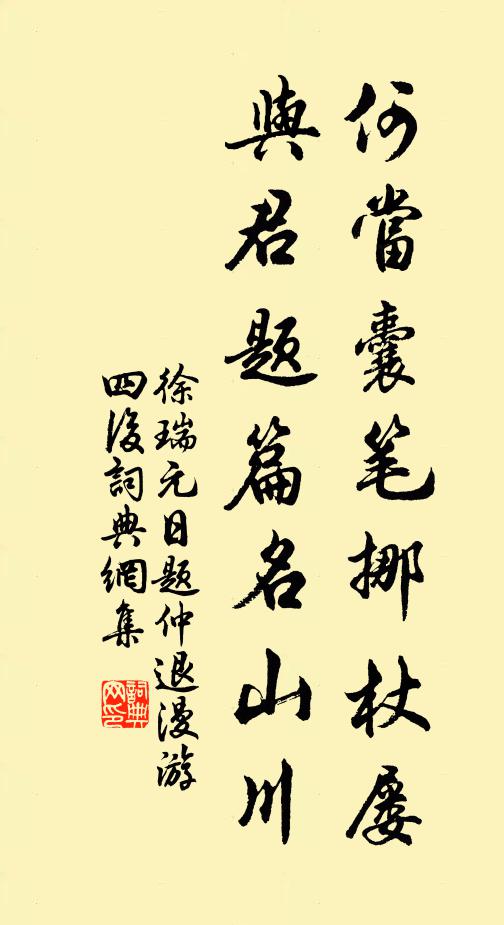 何當囊笔挪杖屡
與君题篇名山川
徐瑞元日题仲退漫游
四後詞典網集
詞典